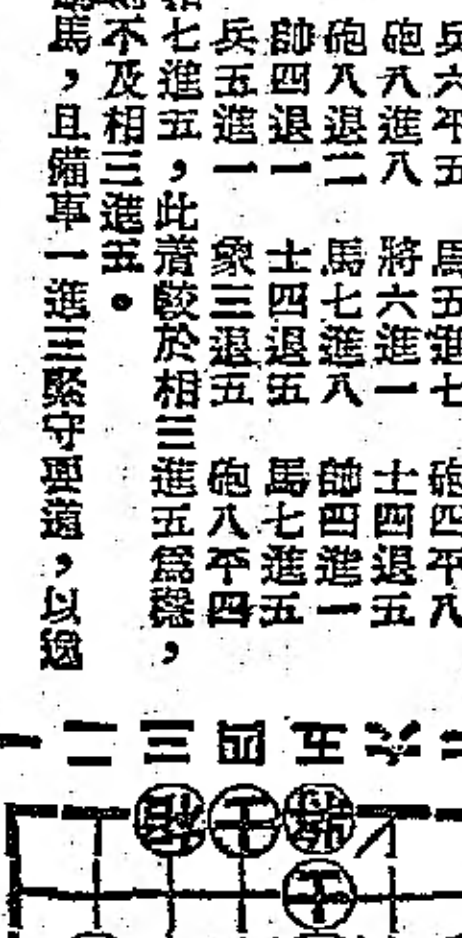 兵六平五　馬五進七　砲四平八
砲八進八　將六進一　士四退五
砲八退二　馬七進八　帥四進一
帥四退一　士四退五　馬七進五
兵五進一　象三退五　砲八平四
七進五，此着較於相三進五為穩，
不及相三進五。
馬，且備車一進三緊守要道，以逸
一二三四五六